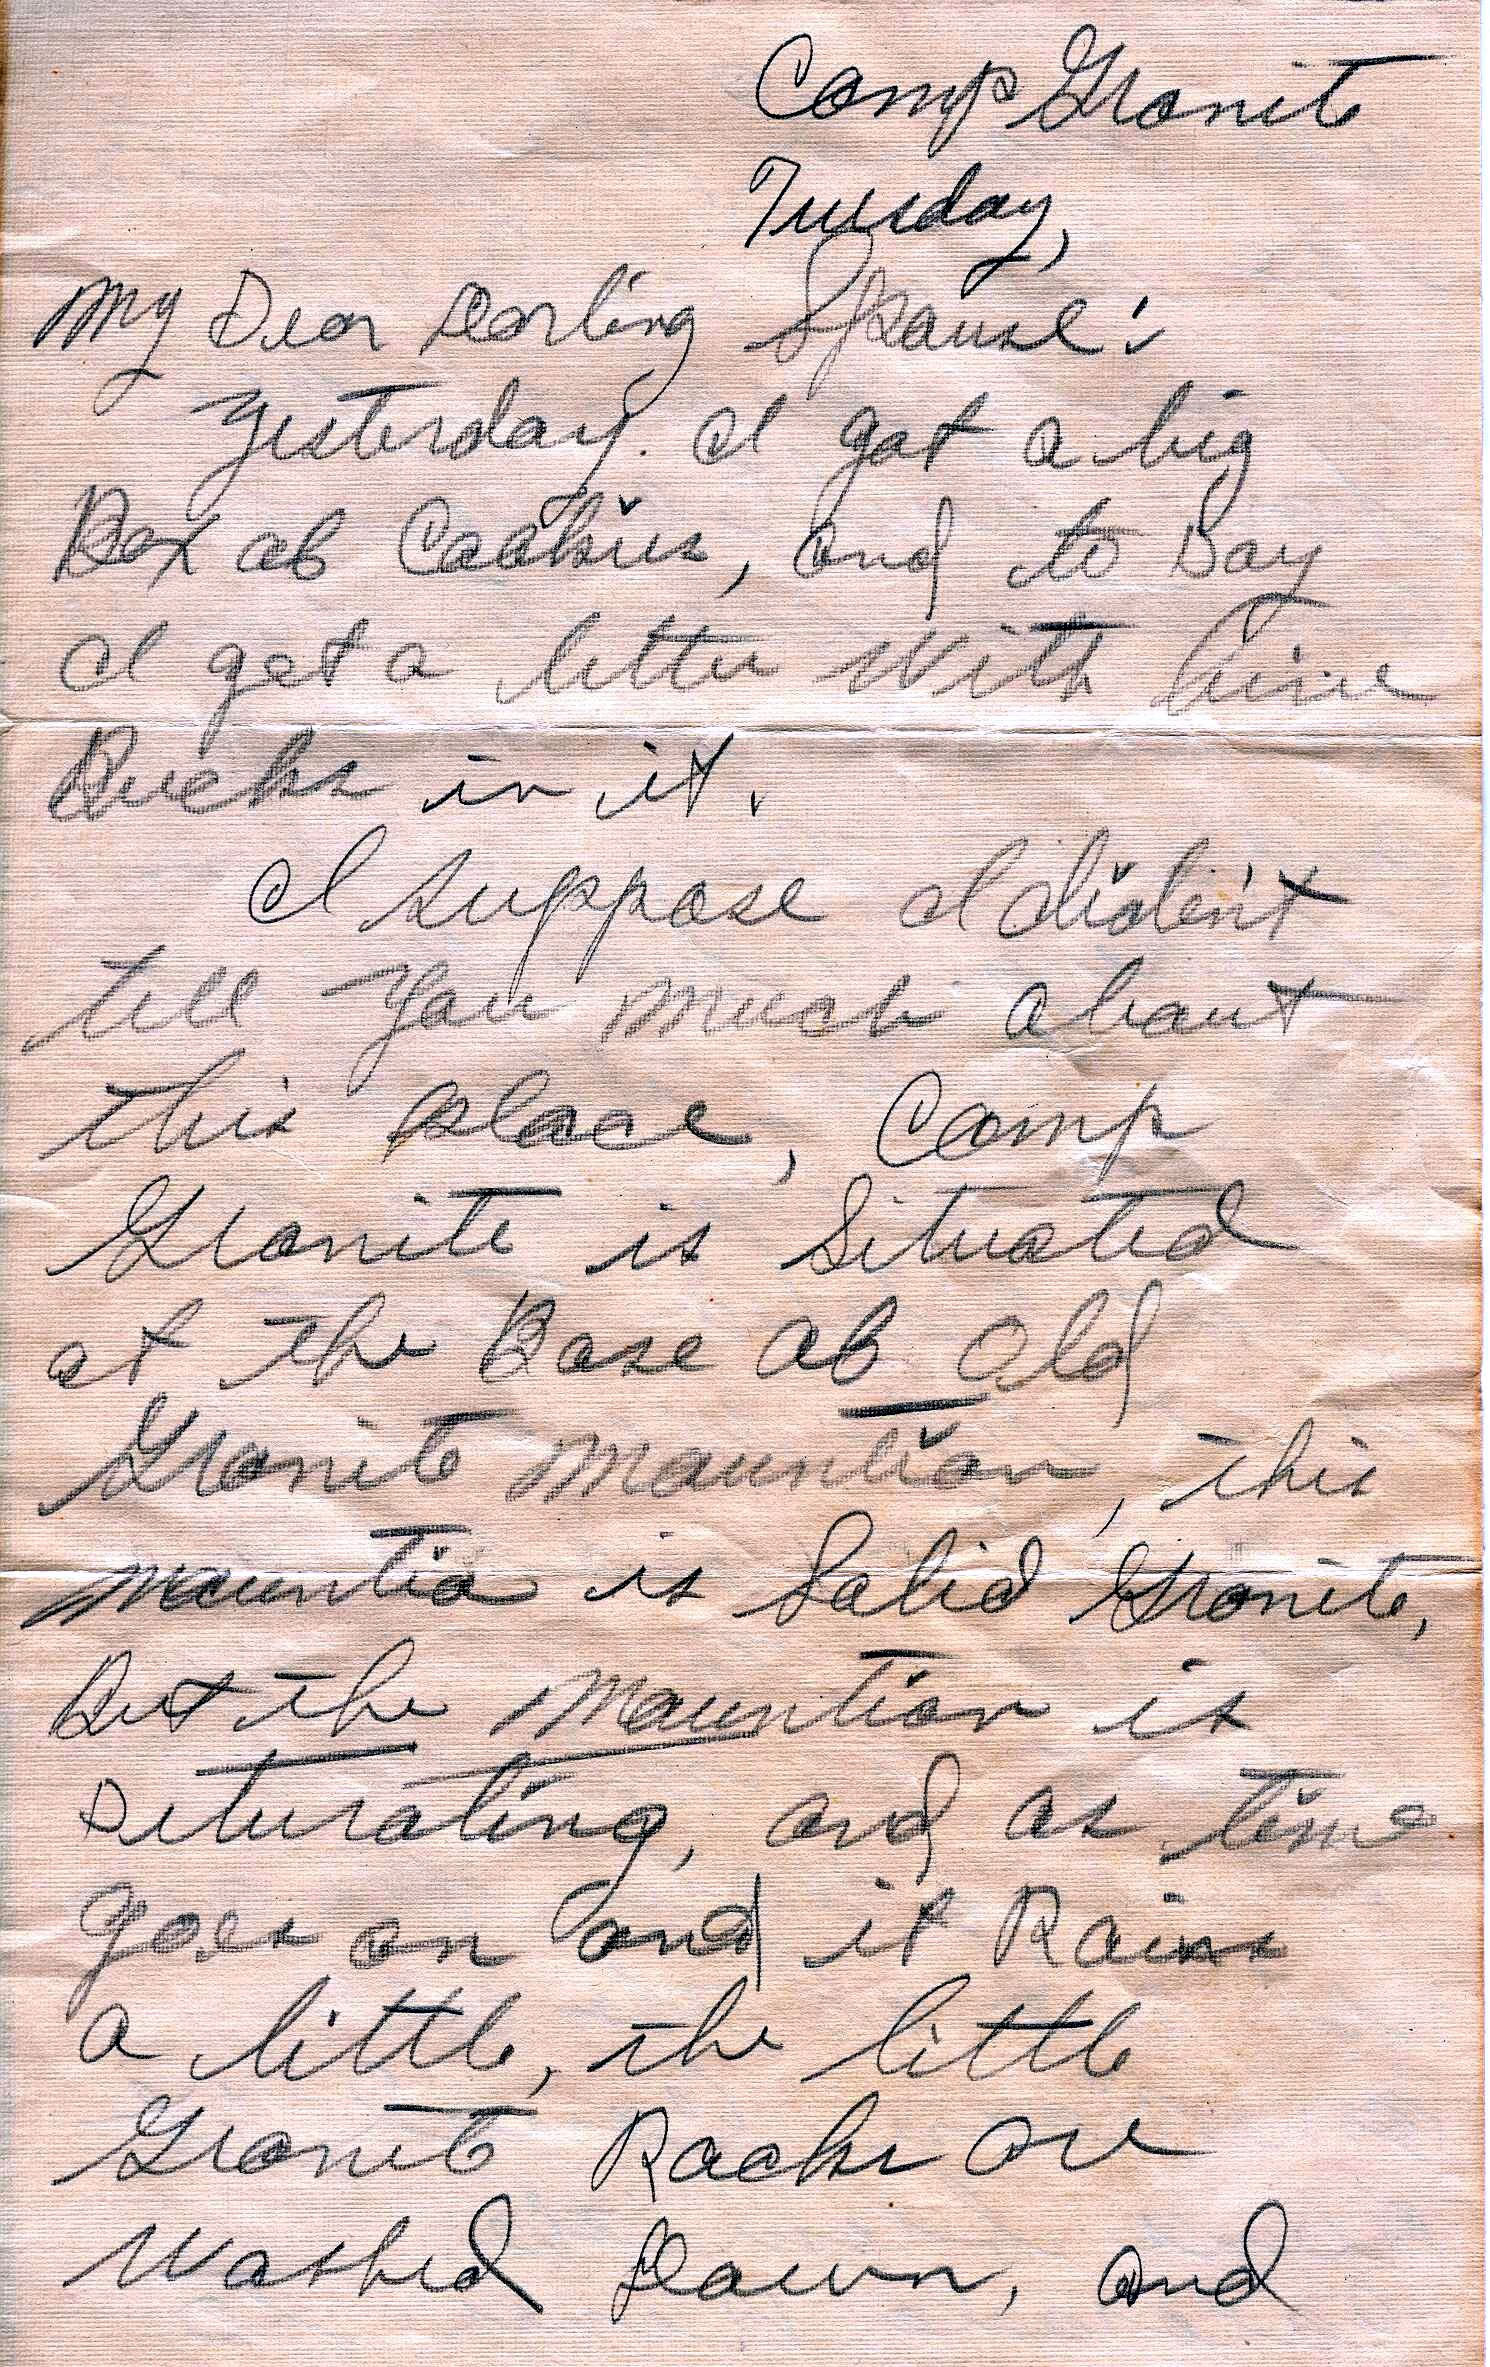 Camp Granite
Tuesday,
My Dear Darling Spouse:
Yesterday I got a big
Box of Cookies, and to Day
I got a letter with five
Bucks in it.
I suppose I diden't
tell you much about
this place, Camp
Granite is situated
at the Base of Old
Granite Mountian, this
mountia is solid Granite,
but the mountian is
deturating, and as time
goes on and it Rains
a little, the little
Granite Rocks are
washed Down, and